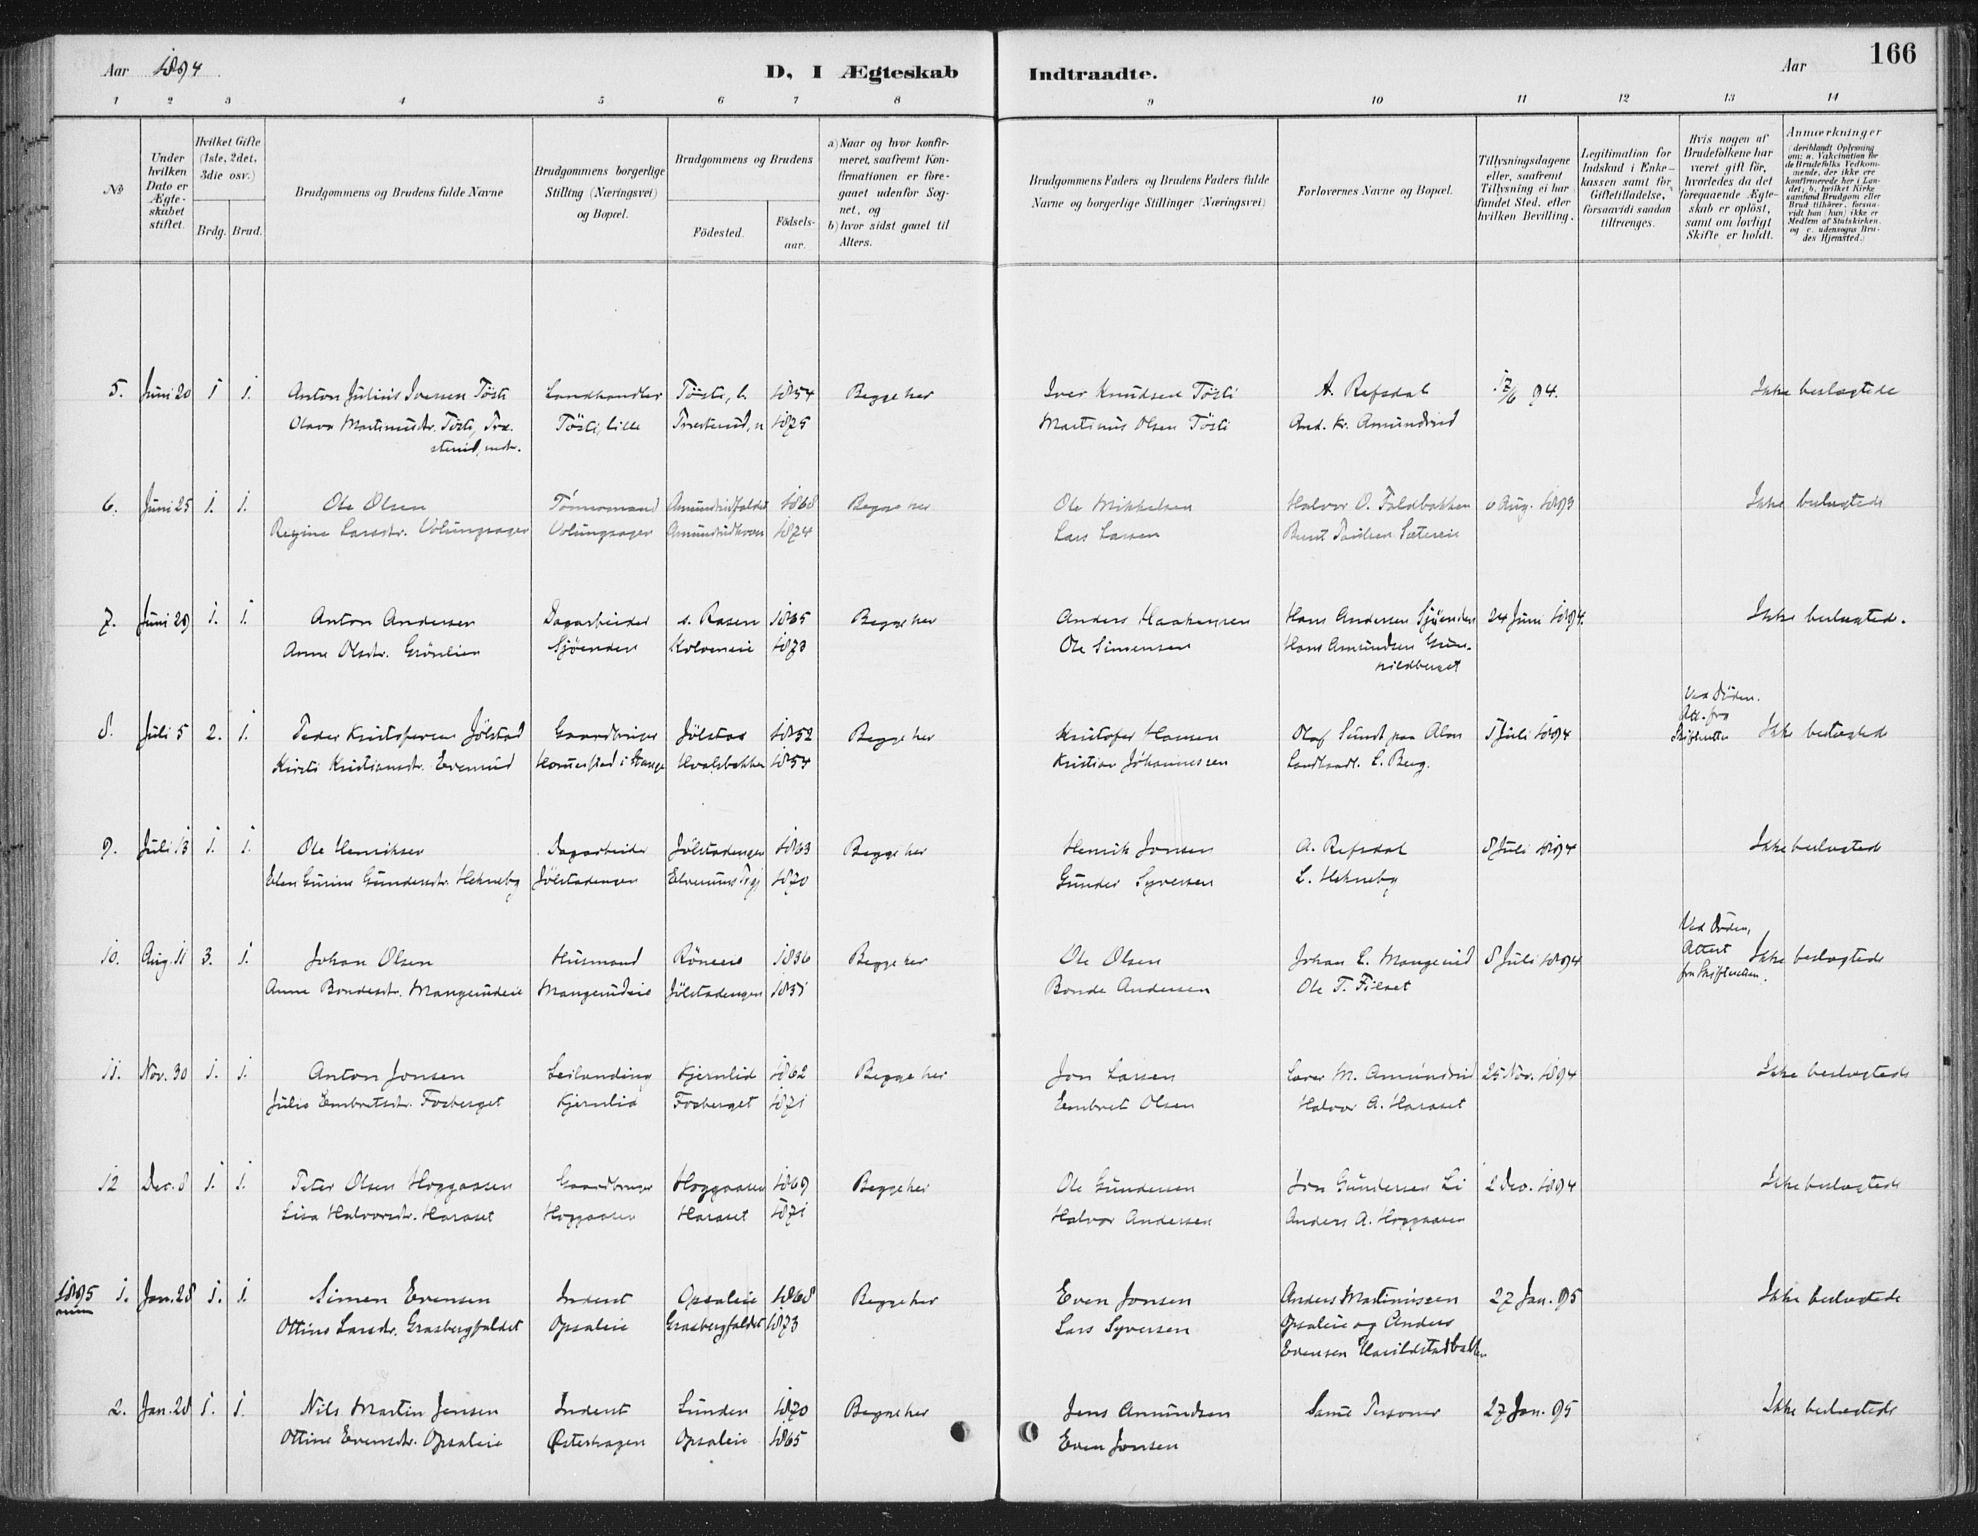 Aar 1894 D, I Ægteskab Indtraadte. Aar 166
1 2 3 4 5 6 7 8 9 10 11 12 13 14
No
Under hvilken Dato er Ægteskabet stiftet.
Hvilket Gifte (1ste, 2det, 3die osv.)
Brdg. Brud.
Brudgommens og Brudens fulde Navne
Brudgommens borgerlige Stilling (Næringsvei) og Bopæl.
Brudgommens og Brudens
Födested.
Födsels-aar.
a) Naar og hvor konfirmeret, saafremt Konfirmationen er foregaaet udenfor Sognet, og
b) hvor sidst gaaet til Alters.
Brudgommens Faders og Brudens Faders fulde Navne og borgerlige Stillinger (Næringsvei)
Forlovernes Navne og Bopæl.
Tillysningsdagene eller, saafremt Tillysning ei har fundet Sted, efter hvilken Bevilling.
Legitimation for Indskud i Enkekassen samt for Giftetilladelse, forsaavidt saadan tiltrænges.
Hvis nogen af Brudefolkene har været gift før, hvorledes da det foregaaende Ægteskab er oplöst, samt om lovligt Skifte er holdt.
Anmærkninger (deriblandt Oplysning om: a. Vakcination for de Brudefolks Vedkommende, der ikke ere konfirmerede her i Landet; b. hvilket Kirkesamfund Brudgom eller Brud tilhörer, forsaavidt han (hun) ikke er Medlem af Statskirken, og c. udensogns Brudes Hjemsted.)
5. Juni 20 1 1. Anton Julius Iversen Tösti Landhandler Tösti, l. 1854 Begge her Iver Knudsen Tösti A. Refsdal 17/6 94. Ikke beslægtede
Olava Martinusdr. Tösti, Træ- Tösti, lille 1875 Martinus Olsen Tösti And. Kr. Amundrud
6. Juni 25 1. 1. Ole Olsen Tömmermand 1868 Begge her Ole Mikkelsen Halvor O. Faldbakken 6 Aug. 1893 Ikke beslægtede
Regine Larsdr. Volungsager Volungsager 1874 Lars Larsen Bernt Paulsen Sætereie
7. Juni 29 1. 1. Anton Andersen Dagarbeider s. Rasen 1865 Begge her Anders Haakensen Hans Andersen Sjöenden 24 Juni 1894. Ikke beslægted.
Anne Olsdr. Grönlien Sjöenden 1873 Ole Simensen Hans Amundsen Gun-
hildberget
8. Juli 5 2. 1. Peder Kristofersen Jölstad Gaardbruger Jölstad 1852 Begge her Kristofer Hansen Olaf Sundt paa Alm 5 Juli 1894 Ved Döden. Att. fra Skifteretten Ikke beslægtede
Kirsti Kristiansdr. Evenrud Hvalsbakken 1854 Kristian Johannessen Landhandl. L. Berg.
9. Juli 13 1. 1. Ole Henriksen Dagarbeider Jölstadengen 1863 Begge her Henrik Jonsen A. Refsdal 8 Juli 1894 Ikke beslægtede
Elen Gurine Gundersdr. Hekneby Jölstadengen 1870 Gunder Syversen L. Hekneby
10. Aug. 11 3. 1. Johan Olsen Husmand 1836 Begge her Ole Olsen Johan L. Mangerud 8 Juli 1894 Ved Döden, Attest fra Skifteretten. Ikke beslægtede
Anne Bondesdr. Mangerudeie Mangerudeie Jölstadengen 1851 Bonde Andersen Ole T. Filset
11. Nov. 30 1. 1. Anton Jonsen Leilending Kjernlid 1862 Begge her Jon Larsen Laver M. Amundrud 25 Nov. 1894 Ikke beslægtede
Julie Embretsdr. Fosberget Kjernlid Fosberget 1871 Embret Olsen Halvor A. Haraset
12 Dec. 8 1. 1. Peter Olsen Hoggaasen Gaardbruger Hoggaasen 1869 Begge her Ole Gundersen Jon Gundersen Li 2 Dec. 1894 Ikke beslægtede
Lisa Halvorsdr. Haraset Hoggaasen Haraset 1871 Halvor Andersen Anders A. Hoggaasen
1895 1. Jan. 28 1. 1. Simen Evensen Inderst Opsaleie 1868 Begge her Even Jonsen Anders Martinussen 27 Jan. 95 Ikke beslægtede
Ottine Larsdr. Grasbergfaldet Opsaleie Grasbergfaldet 1873 Lars Syversen Opsaleie og Anders
Evensen Havildstadbakken
2. Jan. 28 1. 1. Nils Martin Jensen Inderst Sunden 1870 Begge her Jens Amundsen Same Personer 27 Jan. 95 Ikke beslægtede
Ottine Evensdr. Opsaleie Østerhagen Opsaleie 1865 Even Jonsen